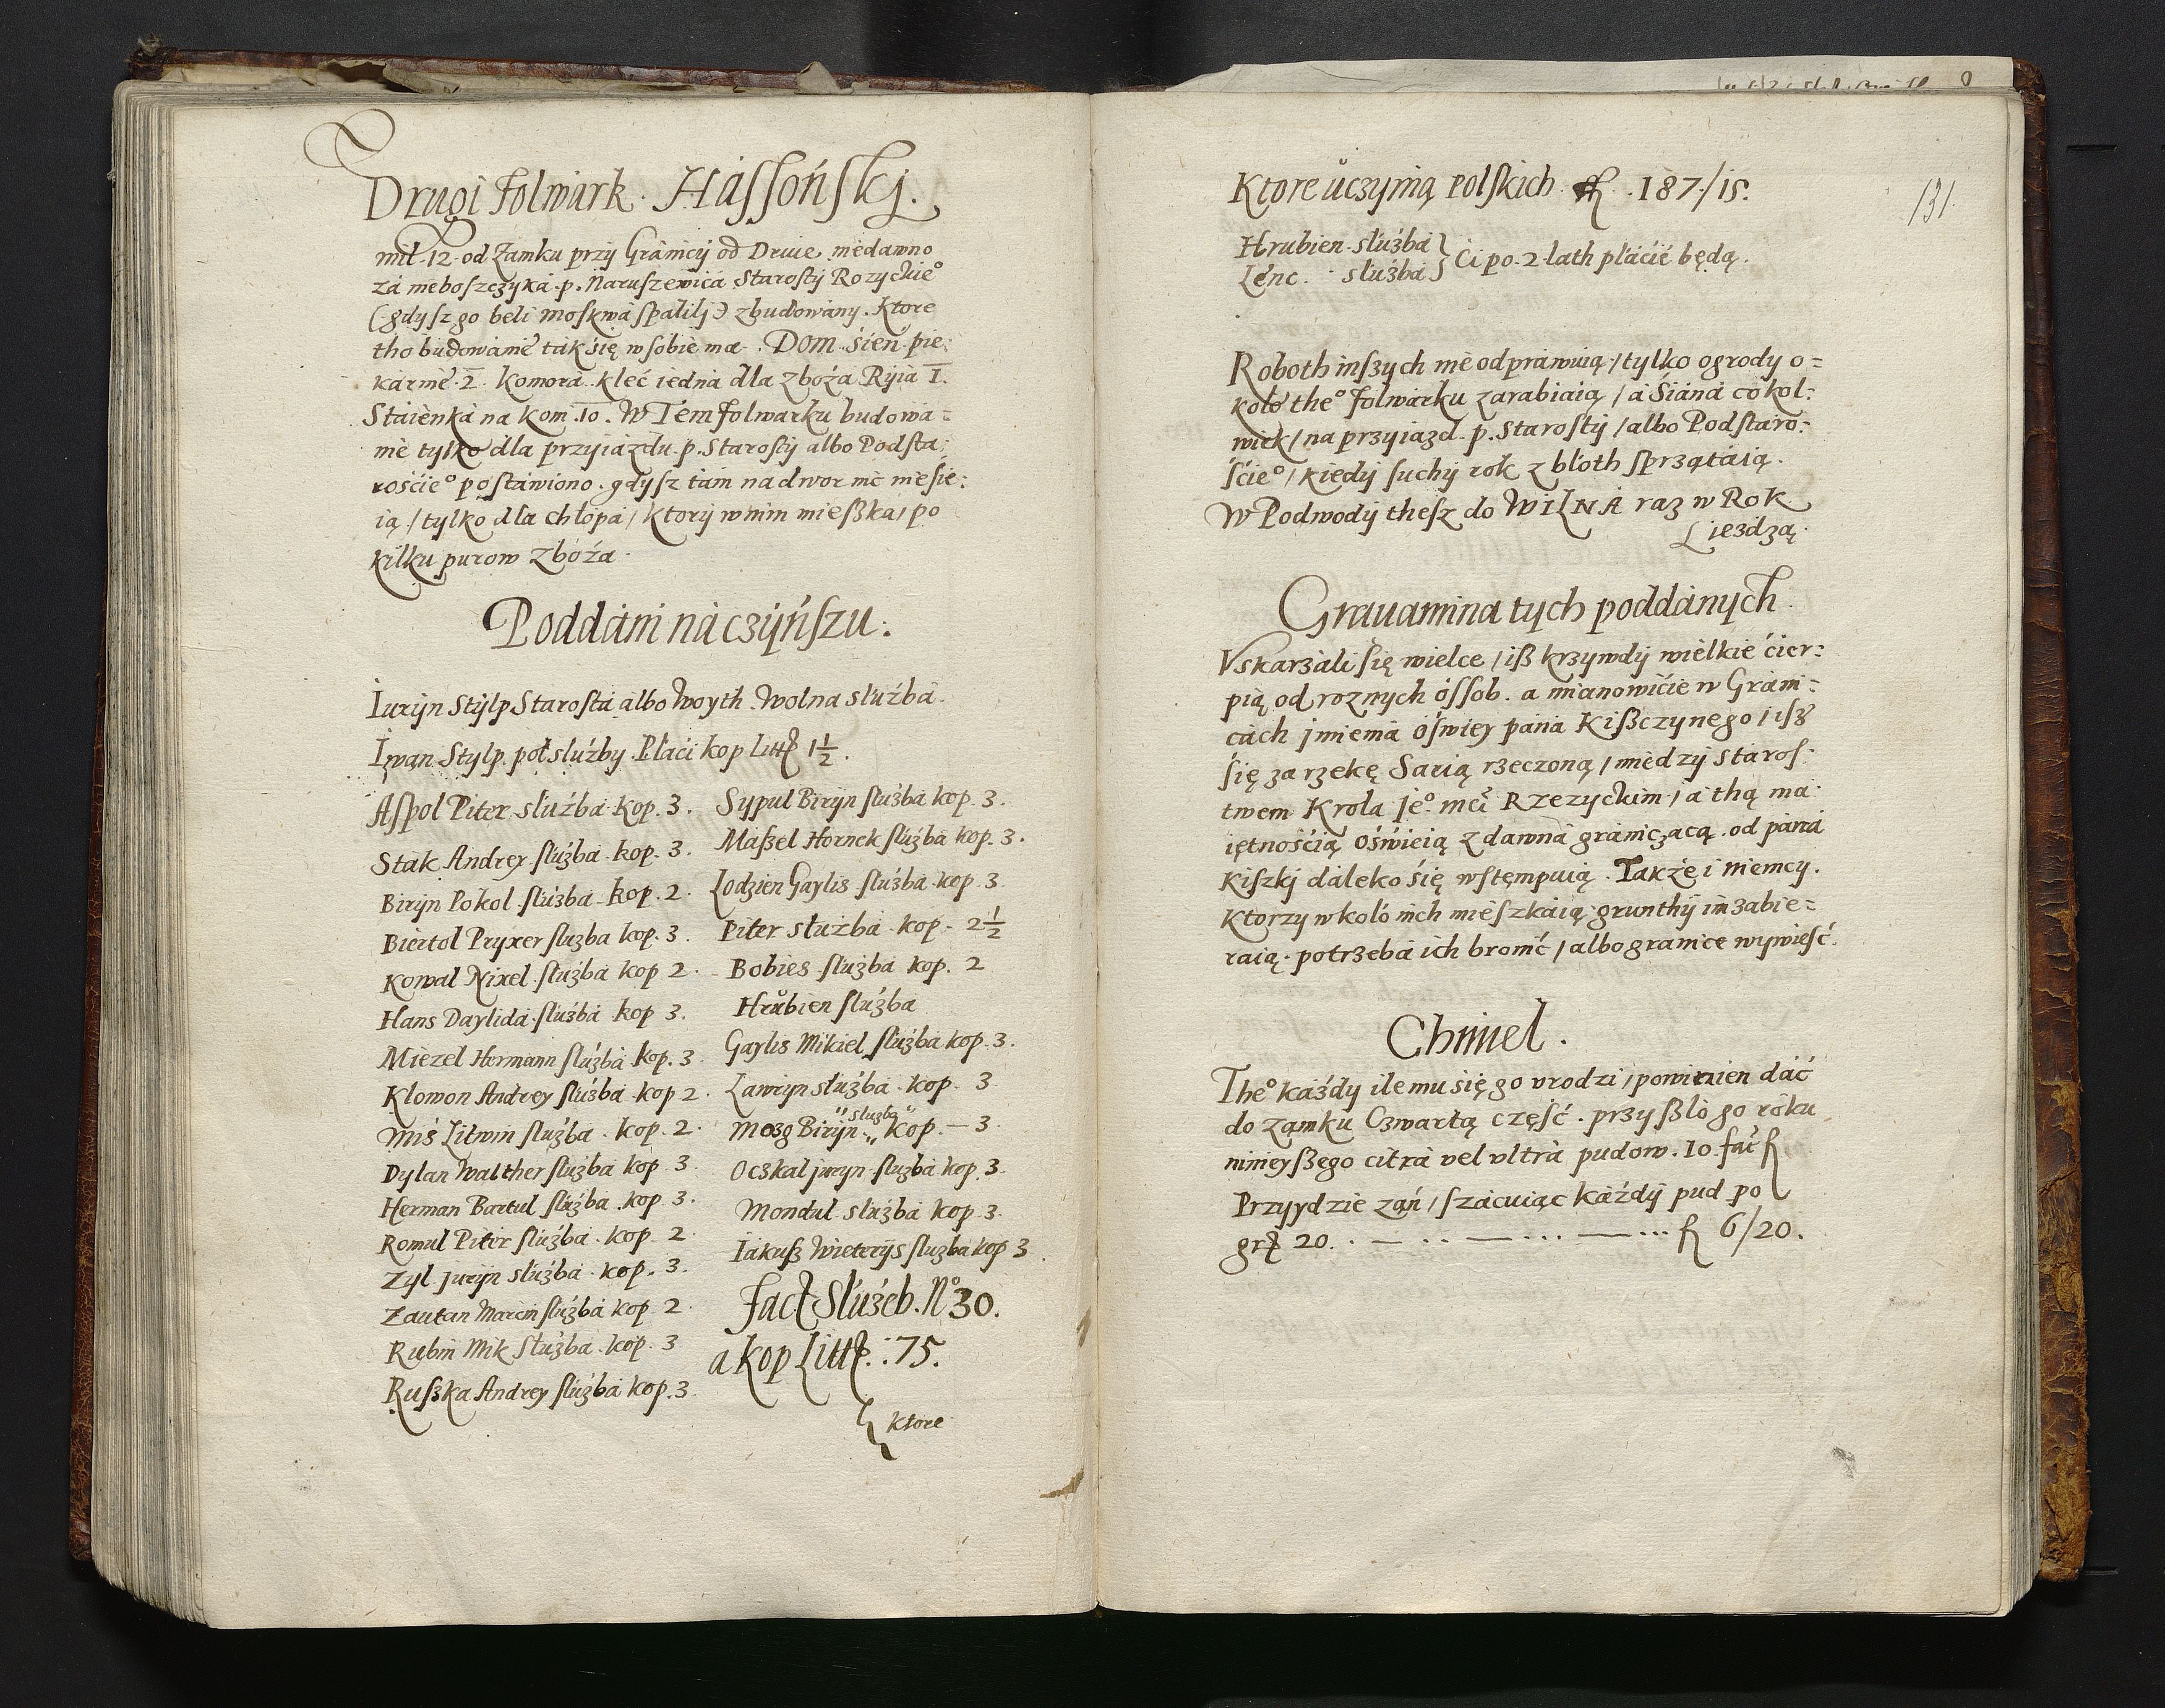 Drugi Folwark. Hassońskj.
mil. 12. od Zamku przy Granicy od Druie, niedawno
zá nieboszczyká. p. Naruszewicá Starosty Rozyckie°
(gdysz go beli Moskwá spalilj) zbudowány. Ktore
tho budowánié ták się w sobie ma. Dom. Sień. pie:
kárnie. 2. Komorá. kleć iedná dla zbożá. Ryiá 1.
Stáienká na kom. 10. W Tem folwarku budowa=
nie tylko dla przyiázdu. p. Starosty albo Podsta:
roście° postáwiono. gdysz tám na dwor nic nie sie:
ią / tylko dla chłopá / ktory w nim mieszka / po
kilku purow zbożá.
Poddáni ná czynszu:
Iuryn Stylp Starosta albo Woyth. Wolna służbá.
Iwan Stylp. poł służby. Płaci kop Litt 1½.
Aspol Piter służbá kop. 3.
Stak Andrey służbá kop. 3.
Biryn Pokol służbá kop. 2.
Biertol Pryxer służba kop. 3.
Kowal Nixel służbá kop 2.
Hans Daylidá służbá kop 3.
Miezel Hermann służbá kop. 3.
Klowon Andrey służbá kop 2.
Miś Litwin służbá. kop. 2.
Dylan Walther służbá kop 3.
Herman Bartul służbá kop 3.
Romul Piter służbá. kop 2.
Zyl juryn służbá kop. 3.
Zautan Marcin służbá kop 2.
Rubin Mik Służba. kop. 3
Ruszka Andrey służbá kop. 3
Sypul Biryn służbá kop. 3.
Maszel Hornek służbá kop. 3.
Lodzien Gaylis służbá kop 3.
Piter służbá kop. 2½
Bobies służbá kop. 2
Hrubien służba
Gaylis Mikiel służbá kop. 3.
Lawryn służbá kop. 3
służba
Mozg Biryn kop. — 3.
Oczkal juryn służbá kop. 3.
Mondul służbá kop 3.
Iakusz Wieterys służba kop 3.
Facit Służeb. N° 30.
a kop Litt: 75.
ktore
131.
Ktore uczynią Polskich fl. 187./15.
Hrubien służbá
Lenc. służbá } Ci po. 2 lath płacić będą.
Roboth inszych nie odpráwuią / tylko ogrody o=
koło the° folwárku zarabiáią / á Siáná cokol:
wiek / na przyiazd. p. Starosty / albo Podstaro:
ście° / kiedy suchy rok z błoth sprzątáią.
W Podwody thesz do WILNA raz w Rok
ieżdzą.
Grauamina tych poddánych
Vskarżáli się wielce / isz krzywdy wielkie ćier:
pią od roznych ossob. a mianowicie w Gráni:
cách jmienia Oświey páná Kiszczynego / isz
się za rzekę Sarią rzeczoną / miedzy staros:
twem Krola Je° mci Rzezyckim / á thą ma:
iętnością Oświeią z dawná grániczącą. od páná
Kiszkj dáleko się wstępuią. Także i Niemcy.
Ktorzy w koło nich mieszkáią grunthy im zabie=
raią. potrzebá ich bronić / albo granice wywieść.
Chmiel.
The° każdy ile mu się go vrodzi / powinien dáć
do zamku Czwartą część. przyszło go roku
ninieyszego citra vel vltrá pudow. 10. facit
Przyydzie zań / szácuiąc káżdy pud po
gr 20. fl 6/20.